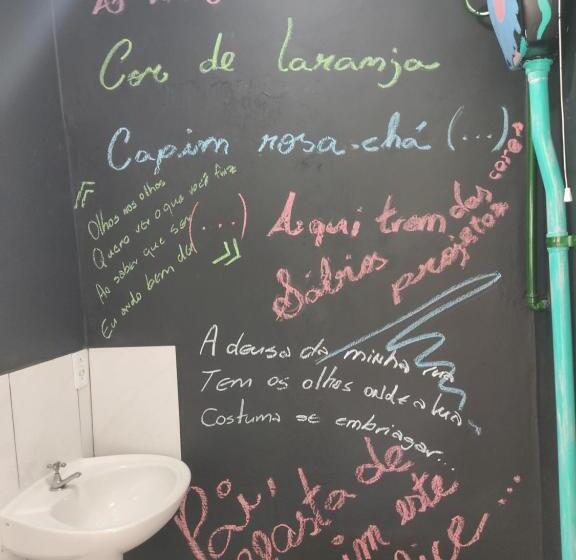 Cor de laranja
Capim rosa-chá (...)
"Olhos nos olhos
Quero ver o que você faz
Ao saber que sem
Eu ando bem de
(...)"
Aqui trem das cores
Sábios projetos
A deusa da minha rua
Tem os olhos onde a lua
Costuma se embriagar...
Pai!
Afasta de
mim este